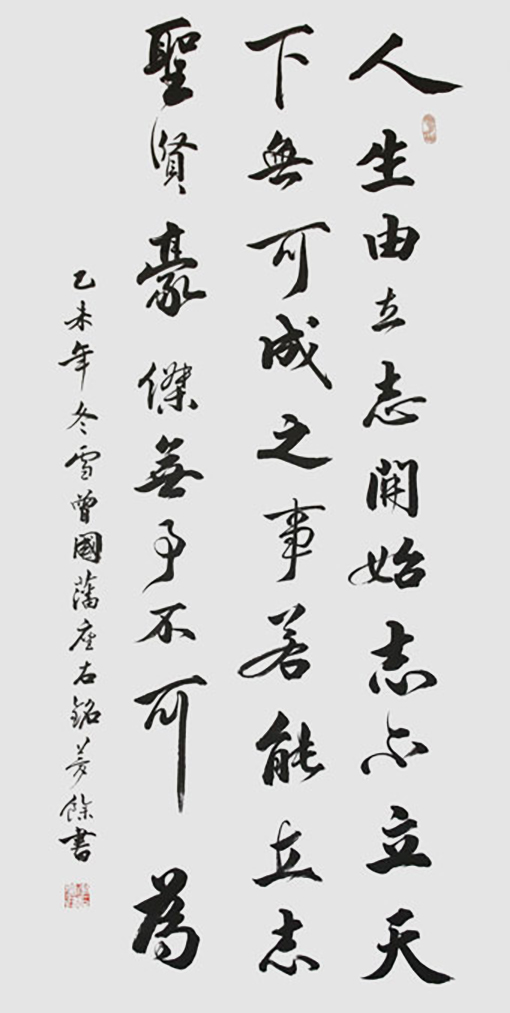 人生由立志開始志不立天
下無可成之事若能立志
聖賢豪傑無事不可為
乙未年冬雪曾國藩座右銘夢餘書